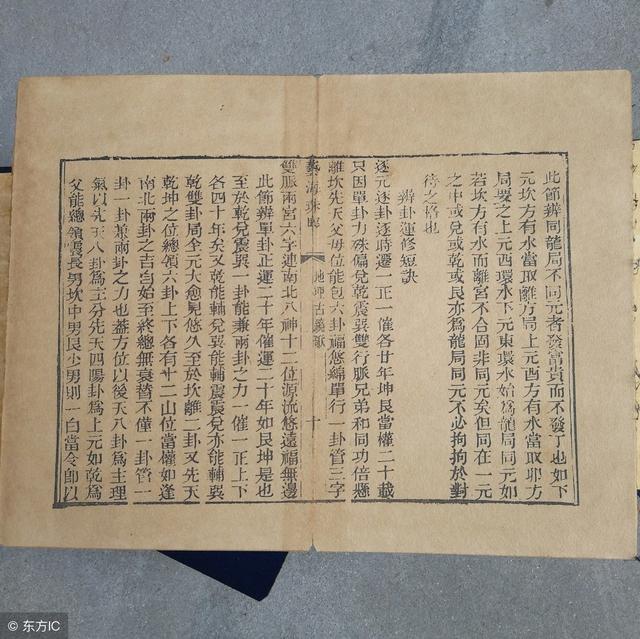 此節辨同龍局不同元者發富貴而不發丁也如下
元坎方有水當取離方局上元酉方有水當取卯方
局要之上元西環水下元東環水始爲龍局同元如
若坎方有水而離宮不合固非同元矣但同在一元
之中或兌或乾或艮亦爲龍局同元不必拘拘於對
待之格也
辨卦運修短訣
逐元逐卦逐時遷一正一催各廿年坤艮當權二十載
只因單卦力殊偏兌乾震巽雙行脈兄弟和同功倍懸
離坎先天父母位能包六卦福悠綿單行一卦管三字
藝海珠塵
地理古鏡歌
十
雙脈兩宮六字連南北八神十二位源流悠遠福無邊
此節辨單卦正運二十年催運二十年如艮坤是也
至於乾兌震巽一卦能兼兩卦之力一催一正上下
各四十年矣又乾能輔兌巽能輔震震兌亦能輔巽
乾雙卦局全元大愈見悠久至於坎離二卦又先天
乾坤之位總領六卦上下各有十二山位當權如逢
南北兩卦之吉自始至終總無衰替不僅一卦管一
卦一卦兼兩卦之力也蓋方位以後天八卦爲主理
氣以先天八卦爲主分先天四陽卦爲上元如乾爲
父能總領震長男坎中男艮少男則一白當令卽以